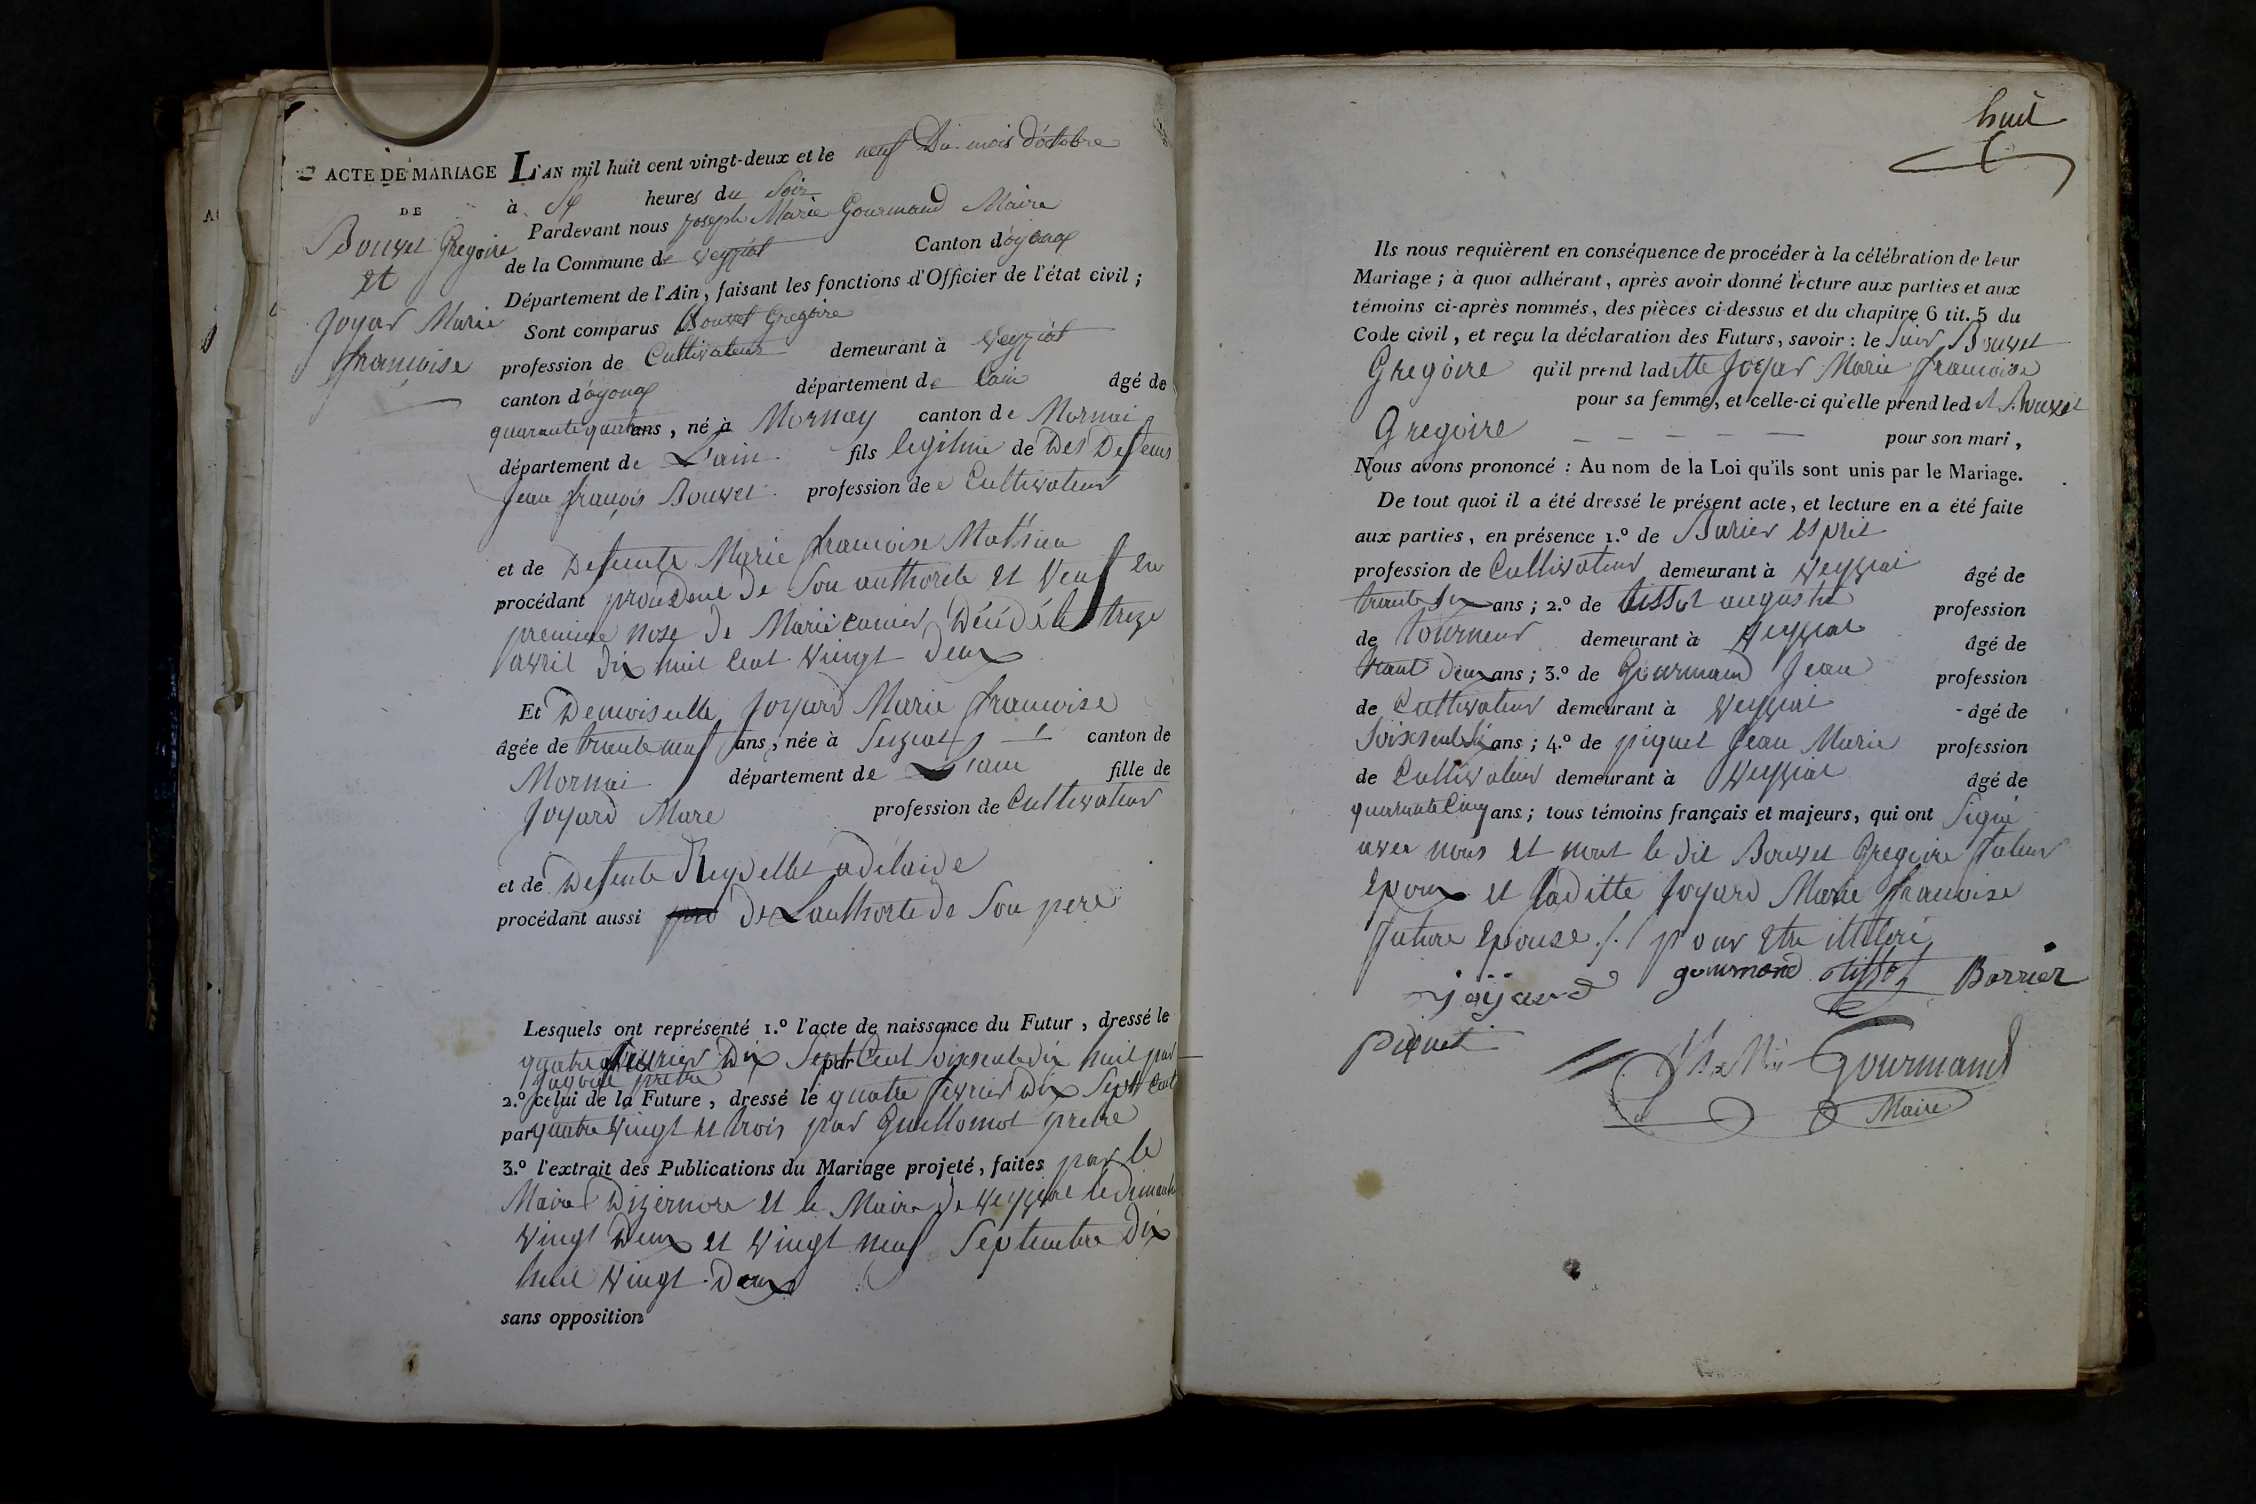 ACTE DE MARIAGE
DE
Bouvet Gregoire
et
Joyar Marie
françoise
L'AN mil huit cent vingt-deux et le neuf Du mois d'octobre
à Six heures du Soir
Pardevant nous joseph Marie Gourmand Maire
de la Commune de veyziat Canton d'oyonax
Département de l'Ain, faisant les fonctions d'Officier de l'état civil ;
Sont comparus Bouvet Gregoire
profession de Cultivateur demeurant à veyziat
canton d'oyonax département de Lain âgé de
quarante quatre ans, né à Mornay canton de Mornai
département de L'ain fils legitime de Des Defeus
Jean françois Bouvet profession de Cultivateur
et de Defeunte Marie francoise Mathieu
procédant de Son authorete et Veuf en
premiere nose de Marie Décédé le treze
avril dix huit Cent vingt deux
Et Demoiselle Joyard Marie francoise
âgée de trante neuf ans, née à canton de
Mornai département de L'ain fille de
Joyard Mare profession de Cultivateur
et de Defeunte Reydellet adélaide
procédant aussi de Lauthorte de Son pere
Lesquels ont représenté 1.º l'acte de naissance du Futur, dressé le
quatre fevrier Dix Sept Cent Soixsente dix huit par
par
pretre
2.º celui de la Future, dressé le quatre fevrier dix Sept Cent
par quatre vingt et trois par Guillomot pretre
3.º l'extrait des Publications du Mariage projeté, faites par le
Maire Dizernore et le Maire de veyziat le dimanche
vingt Deux et vingt neuf Septembre Dix
huit vingt Deux
sans opposition
huit
Ils nous requièrent en conséquence de procéder à la célébration de leur
Mariage ; à quoi adhérant, après avoir donné lecture aux parties et aux
témoins ci-après nommés, des pièces ci-dessus et du chapitre 6 tit. 5 du
Code civil, et reçu la déclaration des Futurs, savoir : le Sieur Bouvet
Gregoire qu'il prend laditte Joyar Marie francoise
pour sa femme, et celle-ci qu'elle prend led it Bouvet
Gregoire — — — — — pour son mari,
Nous avons prononcé : Au nom de la Loi qu'ils sont unis par le Mariage.
De tout quoi il a été dressé le présent acte, et lecture en a été faite
aux parties, en présence 1.º de Barier Esprit
profession de Cultivateur demeurant à veyziat âgé de
trante Six ans ; 2.º de tissot auguste profession
de tourneur demeurant à veyziat âgé de
trant deux ans ; 3.º de Gourmand Jean profession
de Cultivateur demeurant à veyziat âgé de
Soixsente Six ans ; 4.º de piquet Jean Marie profession
de Cultivateur demeurant à veyziat âgé de
quarante Cinq ans ; tous témoins français et majeurs, qui ont Signé
avec nous et nont le dit Bouvet Gregoire futeur
Epoux et laditte Joyard Marie francoise
future Epouse ./. pour Etre illiteré
joyard gourmand tissot Barrier
piquet
Gourmand
Maire